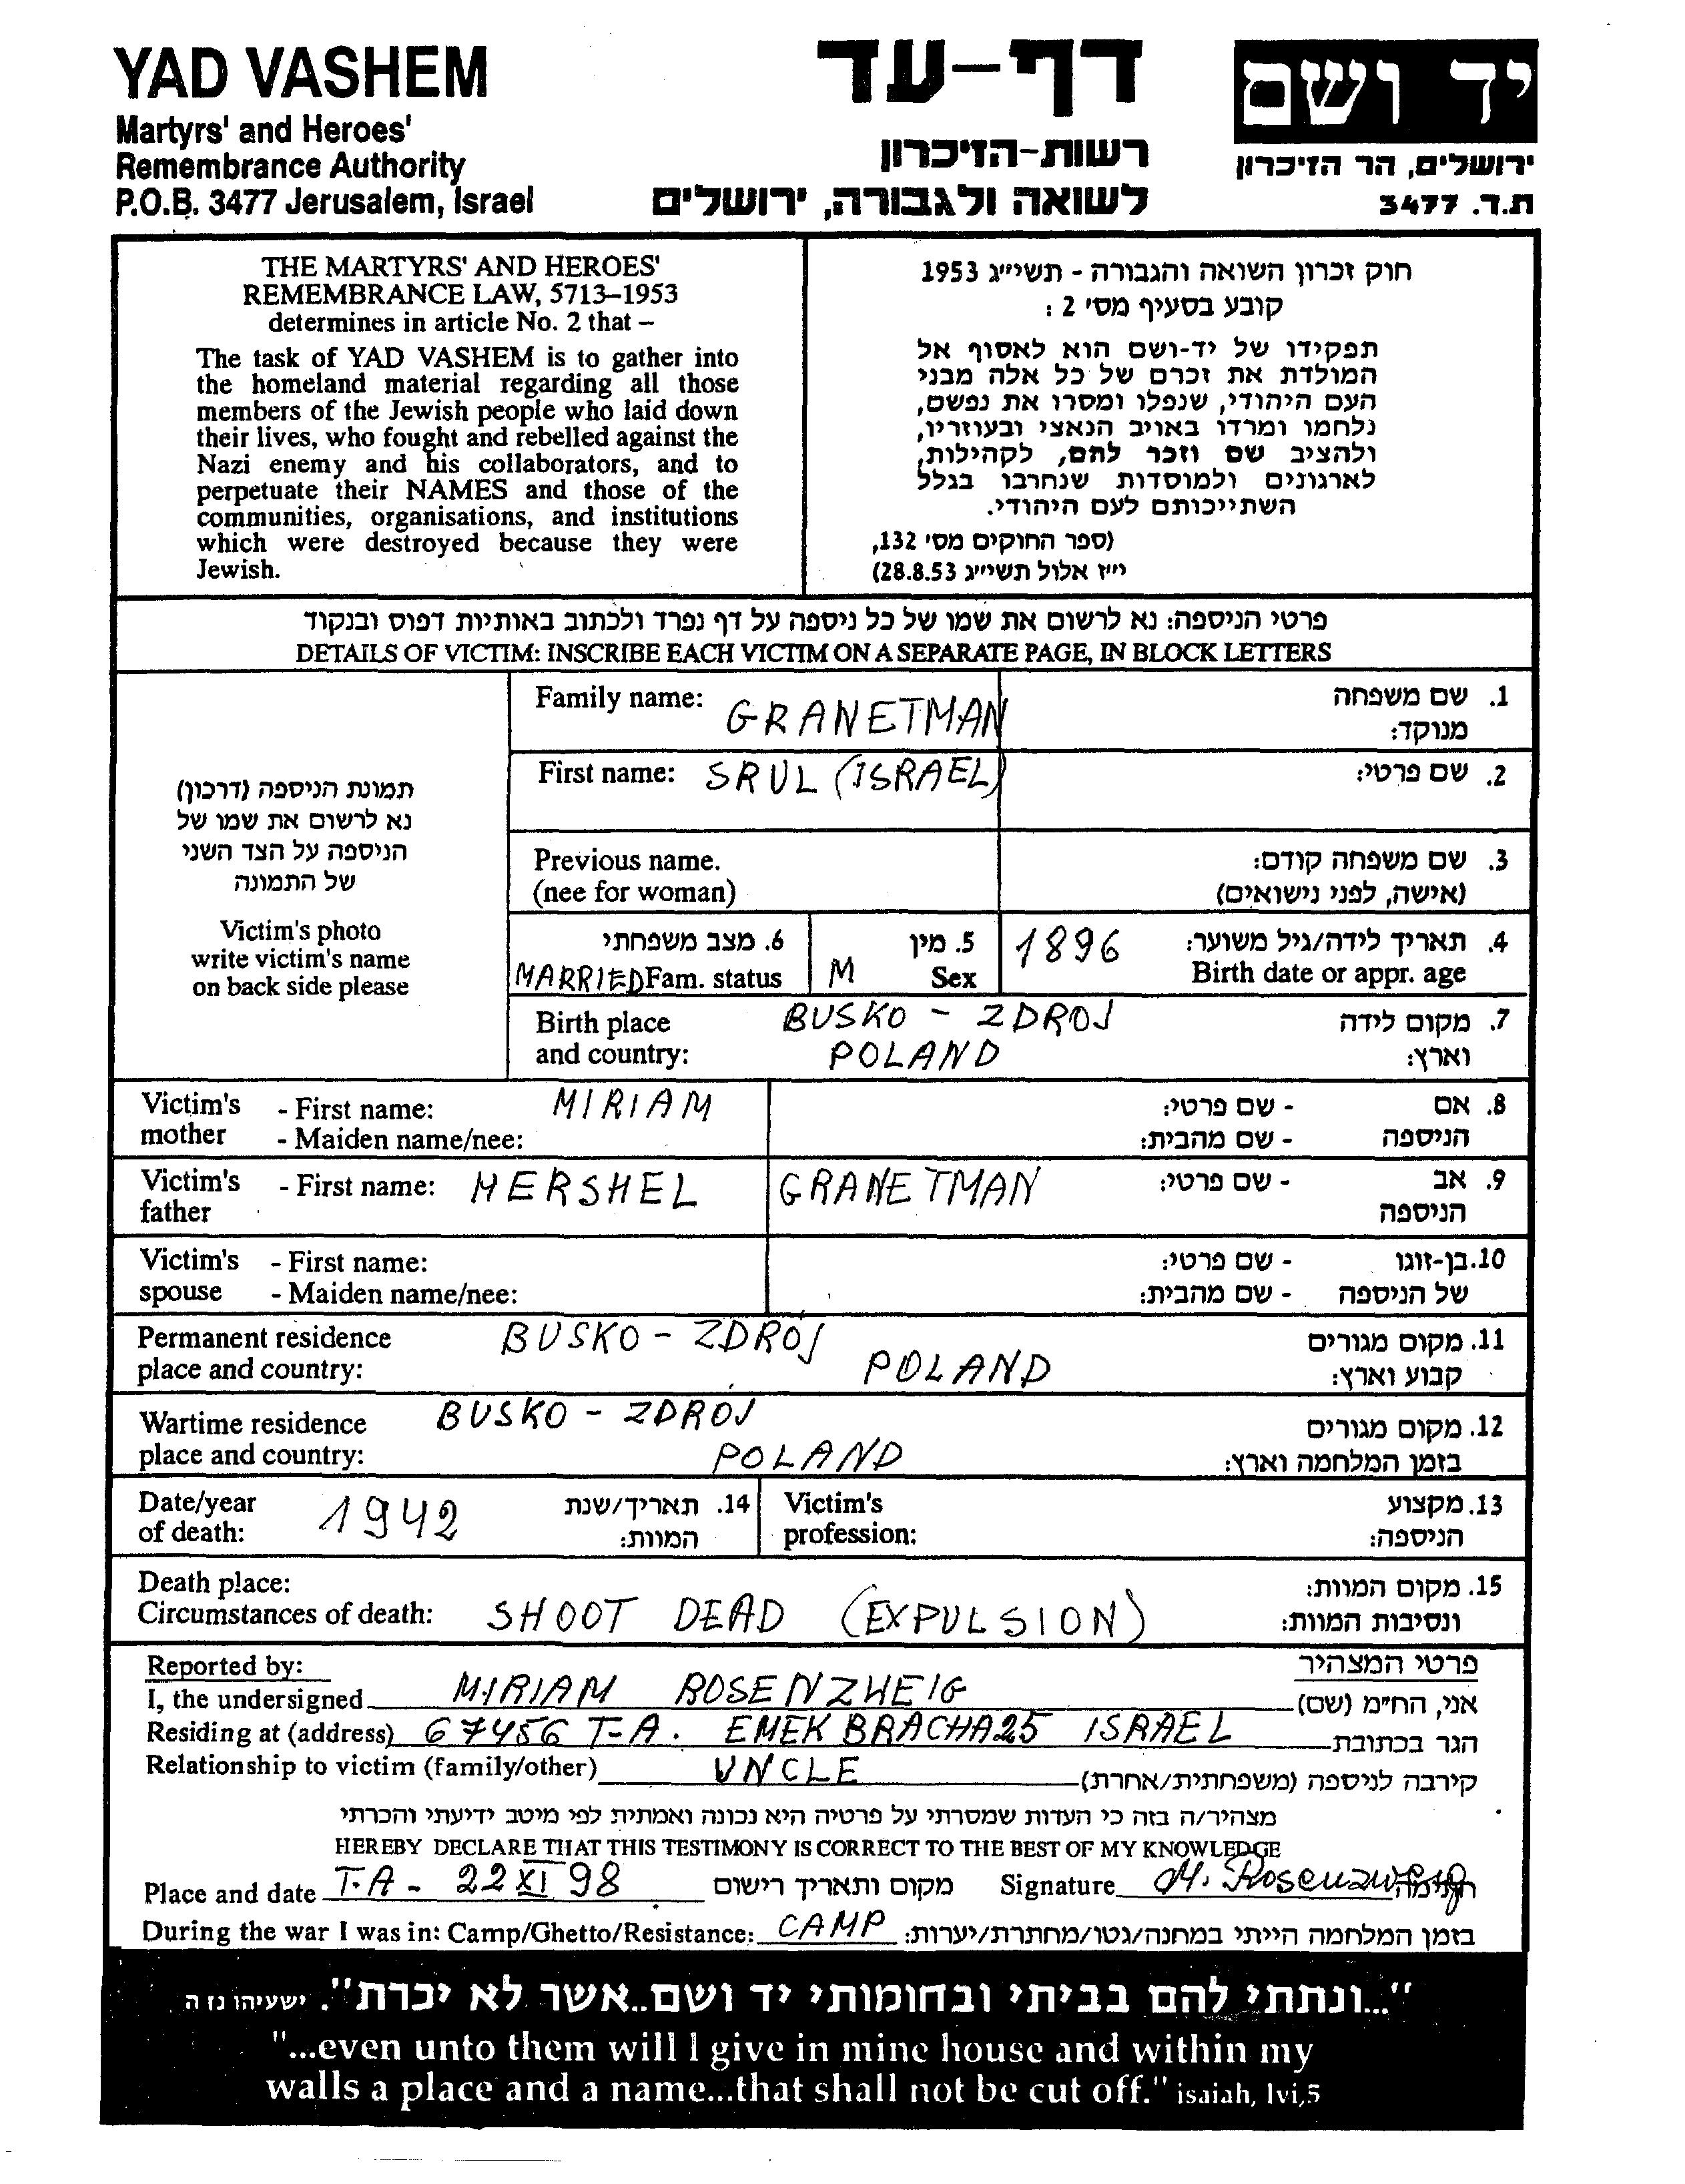 YAD VASHEM
Martyrs' and Heroes'
Remembrance Authority
P.O.B. 3477 Jerusalem, Israel
דף-עד
רשות-הזיכרון
לשואה ולגבורה, ירושלים
יד ושם
ירושלים, הר הזיכרון
ת.ד. 3477
THE MARTYRS' AND HEROES'
REMEMBRANCE LAW, 5713–1953
determines in article No. 2 that –
The task of YAD VASHEM is to gather into
the homeland material regarding all those
members of the Jewish people who laid down
their lives, who fought and rebelled against the
Nazi enemy and his collaborators, and to
perpetuate their NAMES and those of the
communities, organisations, and institutions
which were destroyed because they were
Jewish.
חוק זכרון השואה והגבורה - תשי״ג 1953
קובע בסעיף מס' 2 :
תפקידו של יד-ושם הוא לאסוף אל
המולדת את זכרם של כל אלה מבני
העם היהודי, שנפלו ומסרו את נפשם,
נלחמו ומרדו באויב הנאצי ובעוזריו,
ולהציב שם וזכר להם, לקהילות,
לארגונים ולמוסדות שנחרבו בגלל
השתייכותם לעם היהודי.
(ספר החוקים מס' 132,
י״ז אלול תשי״ג 28.8.53)
פרטי הניספה: נא לרשום את שמו של כל ניספה על דף נפרד ולכתוב באותיות דפוס ובנקוד
DETAILS OF VICTIM: INSCRIBE EACH VICTIM ON A SEPARATE PAGE, IN BLOCK LETTERS
תמונת הניספה (דרכון)
נא לרשום את שמו של
הניספה על הצד השני
של התמונה
Victim's photo
write victim's name
on back side please
Family name: GRANETMAN 1. שם משפחה
מנוקד:
First name: SRUL (ISRAEL) 2. שם פרטי:
Previous name. 3. שם משפחה קודם:
(nee for woman) (אישה, לפני נישואים)
6. מצב משפחתי 5. מין 1896 4. תאריך לידה/גיל משוער:
MARRIED Fam. status M Sex Birth date or appr. age
Birth place BUSKO - ZDROJ 7. מקום לידה
and country: POLAND וארץ:
Victim's - First name: MIRIAM - שם פרטי: 8. אם
mother - Maiden name/nee: - שם מהבית: הניספה
Victim's - First name: HERSHEL GRANETMAN - שם פרטי: 9. אב
father הניספה
Victim's - First name: - שם פרטי: 10. בן-זוגו
spouse - Maiden name/nee: - שם מהבית: של הניספה
Permanent residence BUSKO - ZDRÓJ 11. מקום מגורים
place and country: POLAND קבוע וארץ:
Wartime residence BUSKO - ZDROJ 12. מקום מגורים
place and country: POLAND בזמן המלחמה וארץ:
Date/year 1942 14. תאריך/שנת Victim's 13. מקצוע
of death: המוות: profession: הניספה:
Death place: 15. מקום המוות:
Circumstances of death: SHOOT DEAD (EXPULSION) ונסיבות המוות:
Reported by: פרטי המצהיר
I, the undersigned MIRIAM ROSENZWEIG אני, הח״מ (שם)
Residing at (address) 67456 T-A. EMEK BRACHA 25 ISRAEL הגר בכתובת
Relationship to victim (family/other) UNCLE קירבה לניספה (משפחתית/אחרת)
מצהיר/ה בזה כי העדות שמסרתי על פרטיה היא נכונה ואמתית לפי מיטב ידיעתי והכרתי
HEREBY DECLARE THAT THIS TESTIMONY IS CORRECT TO THE BEST OF MY KNOWLEDGE
Place and date T.A - 22 XI 98 מקום ותאריך רישום Signature M. Rosenzweig חתימה
During the war I was in: Camp/Ghetto/Resistance: CAMP בזמן המלחמה הייתי במחנה/גטו/מחתרת/יערות:
"...ונתתי להם בביתי ובחומותי יד ושם..אשר לא יכרת". ישעיהו נו ה
"...even unto them will I give in mine house and within my
walls a place and a name...that shall not be cut off." isaiah, lvi,5